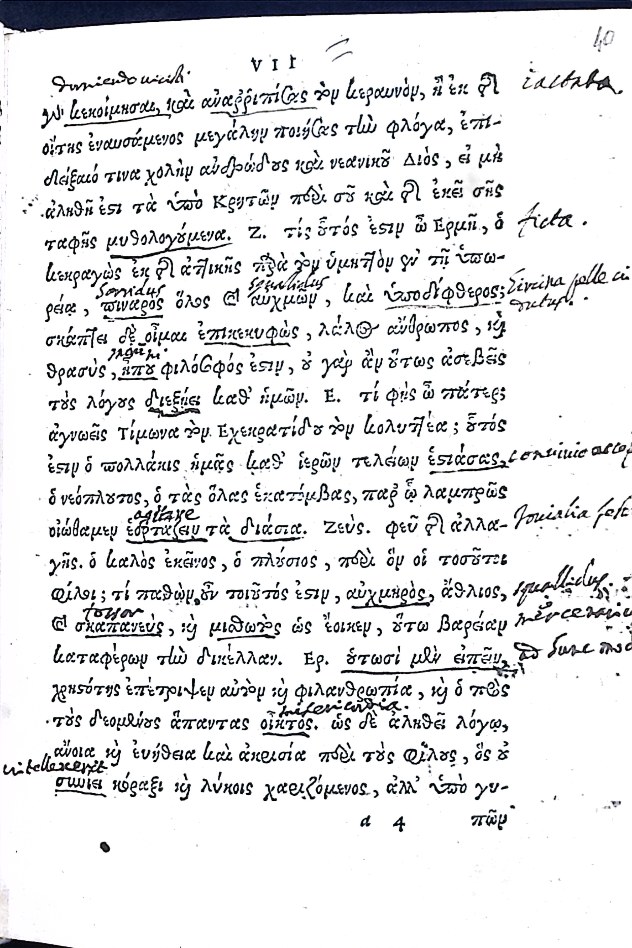 40
VII
γυ κεκοίμησαι, καὶ ἀναῤῥιπίσας τὸν κεραυνὸν, ἢ ἐκ τῆς iactata
οἴτης ἐναυσάμενος μεγάλην ποιήσας τὴν φλόγα, ἐπι-
δείξαιό τινα χολὴν ἀνδρώδους καὶ νεανικοῦ Διὸς, εἰ μὴ
ἀληθῆ ἐστι τὰ ὑπὸ Κρητῶν περὶ σοῦ καὶ τῆς ἐκεῖ σῆς
ταφῆς μυθολογούμενα. Ζ. τίς οὗτός ἐστιν ὦ Ερμῆ, ὁ ficta.
κεκραγὼς ἐκ τῆς ἀττικῆς παρὰ τὸν ὑμηττὸν ἐν τῇ ὑπω-
sordidus squalidus
ρείᾳ, πιναρὸς ὅλος καὶ αὐχμῶν, καὶ ὑποδίφθερος; pelle
σκάπτει δὲ οἶμαι ἐπικεκυφὼς, λάλος ἄνθρωπος, καὶ
θρασὺς, ἦπου φιλόσοφός ἐστιν, οὐ γὰρ ἂν οὕτως ἀσεβεῖς
τοὺς λόγους διεξῄει καθ' ἡμῶν. Ε. τί φῂς ὦ πάτερ;
ἀγνοεῖς Τίμωνα τὸν Εχεκρατίδου τὸν κολυττέα; οὗτός
ἐστιν ὁ πολλάκις ἡμᾶς καθ' ἱερῶν τελείων ἑστιάσας,
ὁ νεόπλουτος, ὁ τὰς ὅλας ἑκατόμβας, παρ' ᾧ λαμπρῶς
agitare
εἰώθαμεν ἑορτάζειν τὰ διάσια. Ζεύς. φεῦ τῆς ἀλλα- Iovialia
γῆς. ὁ καλὸς ἐκεῖνος, ὁ πλούσιος, περὶ ὃν οἱ τοσοῦτοι
φίλοι; τί παθὼν οὖν τοιοῦτός ἐστιν, αὐχμηρὸς, ἄθλιος, squallidus.
fossor
καὶ σκαπανεὺς, καὶ μισθωτὸς ὡς ἔοικεν, οὕτω βαρεῖαν
καταφέρων τὴν δίκελλαν. Ερ. οὑτωσὶ μὲν εἰπεῖν, ad hunc
χρηστότης ἐπέτριψεν αὐτὸν καὶ φιλανθρωπία, καὶ ὁ πρὸς
misericordia.
τοὺς δεομένους ἅπαντας οἶκτος. ὡς δὲ ἀληθεῖ λόγῳ,
ἄνοια καὶ εὐήθεια καὶ ἀκρισία περὶ τοὺς φίλους, ὃς οὐ
intellexerit
συνιει κόραξι καὶ λύκοις χαριζόμενος, ἀλλ' ὑπὸ γυ-
a 4 πῶν